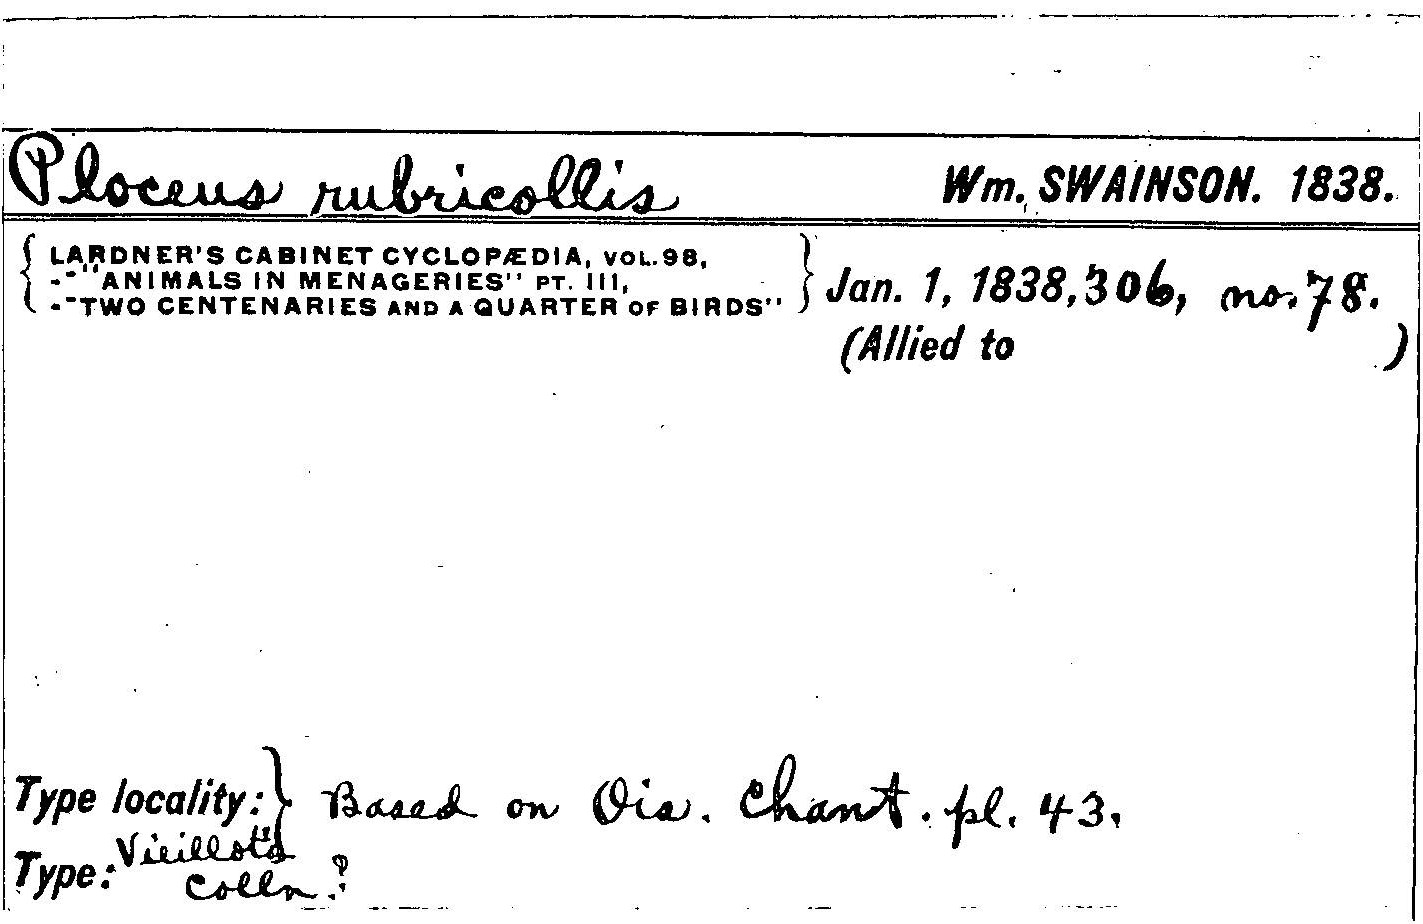 Ploceus rubricollis Wm. SWAINSON. 1838.
LARDNER'S CABINET CYCLOPÆDIA, VOL. 98,
--"ANIMALS IN MENAGERIES" PT. III,
--"TWO CENTENARIES AND A QUARTER OF BIRDS"
Jan. 1, 1838, 306, no. 78.
(Allied to )
Type locality: Based on Ois. Chant. pl. 43.
Type: Vieillot's
Colln.?